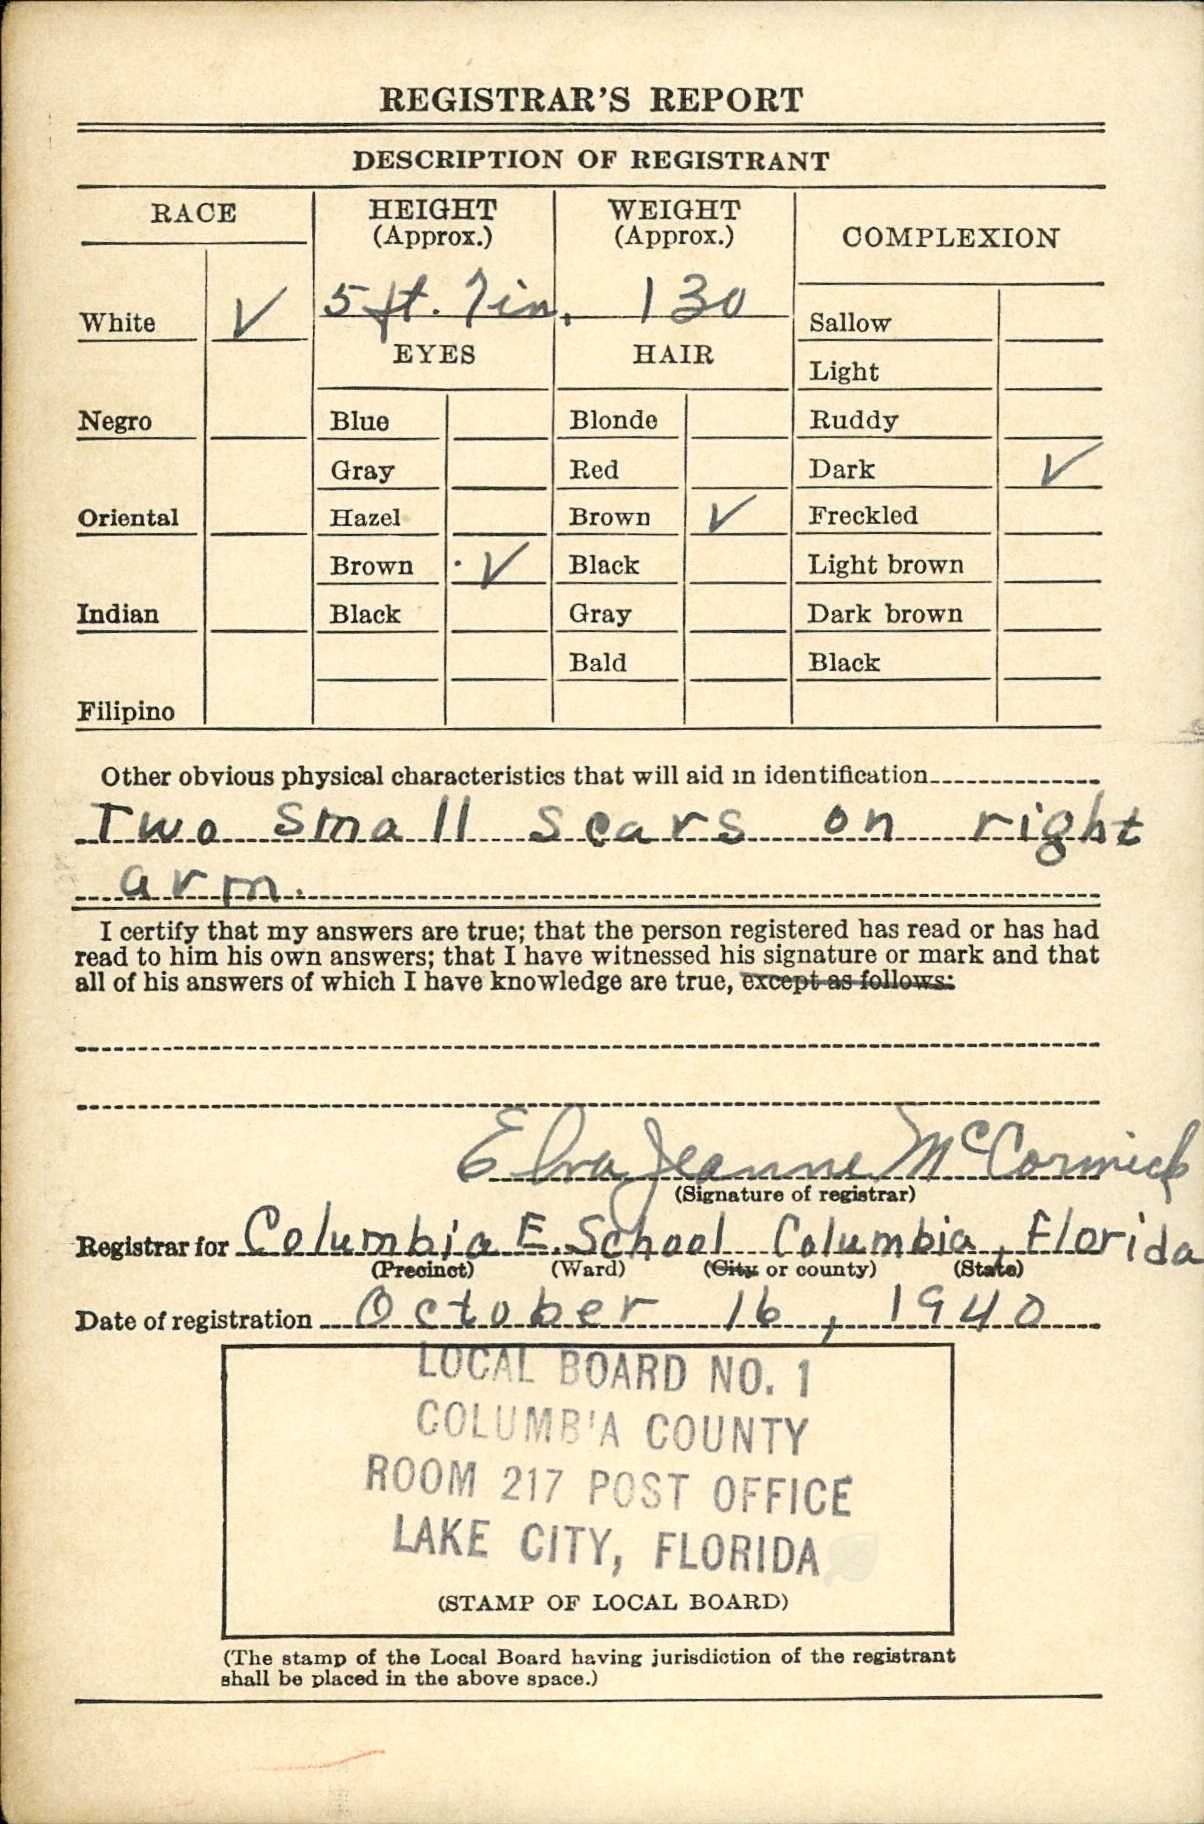 REGISTRAR'S REPORT
DESCRIPTION OF REGISTRANT
RACE
HEIGHT
(Approx.)
WEIGHT
(Approx.)
COMPLEXION
White ✓
5 ft. 7 in.
130
Sallow
EYES
HAIR
Light
Negro
Blue
Blonde
Ruddy
Gray
Red
Dark ✓
Oriental
Hazel
Brown ✓
Freckled
Brown ✓
Black
Light brown
Indian
Black
Gray
Dark brown
Bald
Black
Filipino
Other obvious physical characteristics that will aid in identification
Two small scars on right
arm.
I certify that my answers are true; that the person registered has read or has had
read to him his own answers; that I have witnessed his signature or mark and that
all of his answers of which I have knowledge are true, except as follows:
Elva Jeanne McCormick
(Signature of registrar)
Registrar for Columbia E. School Columbia, Florida
(Precinct) (Ward) (City or county) (State)
Date of registration October 16, 1940
LOCAL BOARD NO. 1
COLUMB'A COUNTY
ROOM 217 POST OFFICE
LAKE CITY, FLORIDA
(STAMP OF LOCAL BOARD)
(The stamp of the Local Board having jurisdiction of the registrant
shall be placed in the above space.)